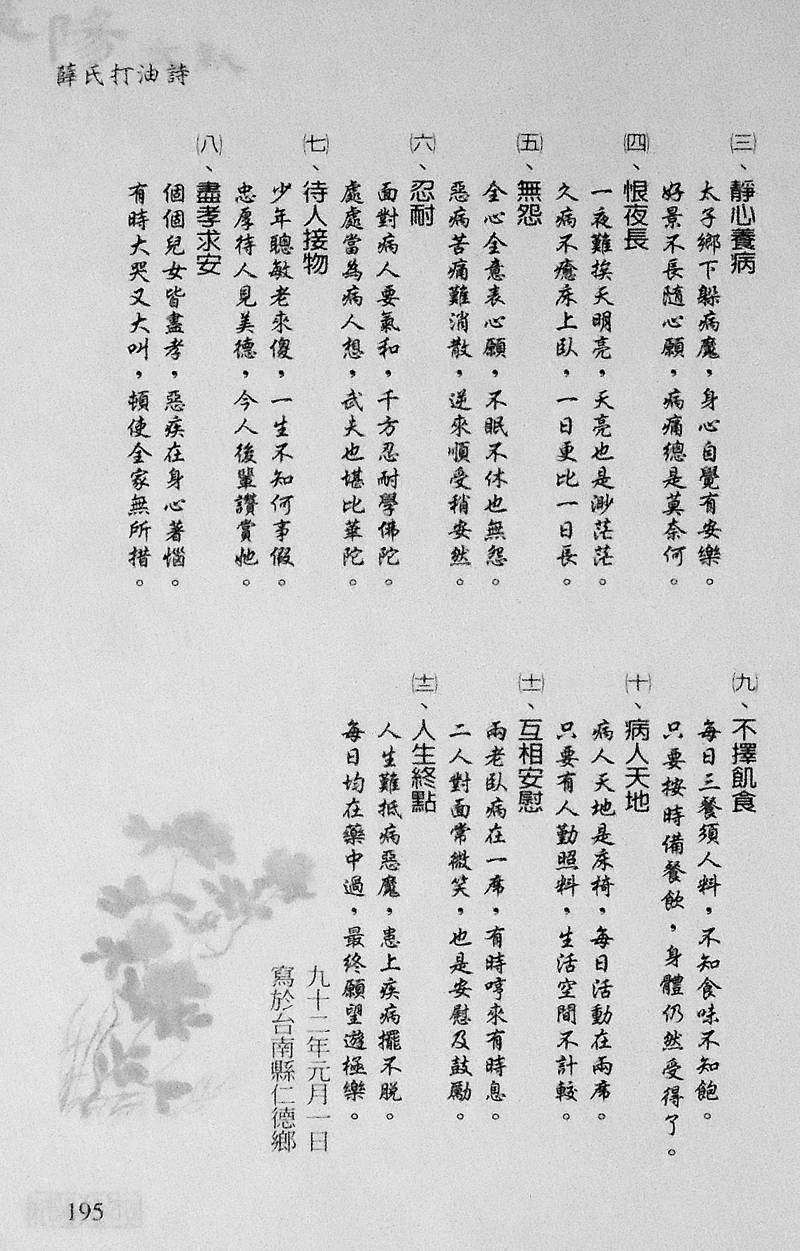 薛氏打油詩
㈢、靜心養病
太子鄉下躲病魔，身心自覺有安樂。
好景不長隨心願，病痛總是莫奈何。
㈣、恨夜長
一夜難挨天明亮，天亮也是渺茫茫。
久病不癒床上臥，一日更比一日長。
㈤、無怨
全心全意表心願，不眠不休也無怨。
惡病苦痛難消散，逆來順受稍安然。
㈥、忍耐
面對病人要氣和，千方忍耐學佛陀。
處處當為病人想，武夫也堪比華陀。
㈦、待人接物
少年聰敏老來傻，一生不知何事假。
忠厚待人見美德，今人後輩讚賞她。
㈧、盡孝求安
個個兒女皆盡孝，惡疾在身心著惱。
有時大哭又大叫，頓使全家無所措。
㈨、不擇飢食
每日三餐須人料，不知食味不知飽。
只要按時備餐飲，身體仍然受得了。
㈩、病人天地
病人天地是床椅，每日活動在兩席。
只要有人勤照料，生活空間不計較。
(十一)、互相安慰
兩老臥病在一席，有時哼來有時息。
二人對面常微笑，也是安慰及鼓勵。
(十二)、人生終點
人生難抵病惡魔，患上疾病擺不脫。
每日均在藥中過，最終願望遊極樂。
九十二年元月一日
寫於台南縣仁德鄉
195